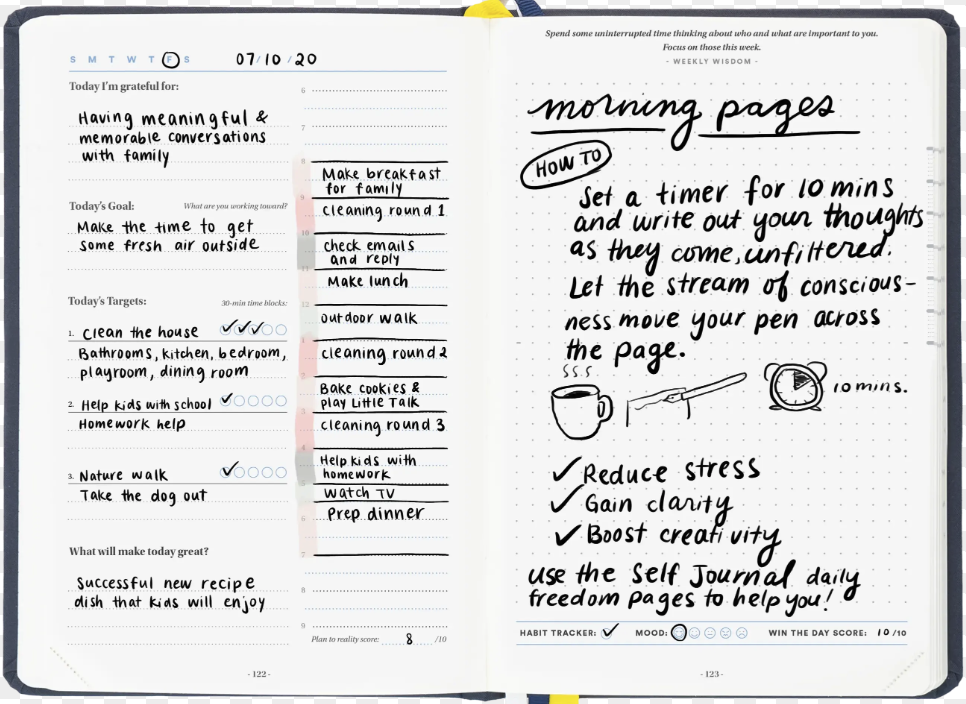 S M T W T F S 07/10/20
Today I'm grateful for:
Having meaningful &
memorable conversations
with family
Today's Goal: What are you working toward?
Make the time to get
some fresh air outside
Today's Targets: 30-min time blocks:
1. Clean the house ✓✓✓
Bathrooms, kitchen, bedroom,
playroom, dining room
2. Help kids with school ✓
Homework help
3. Nature walk ✓
Take the dog out
What will make today great?
Successful new recipe
dish that kids will enjoy
6
7
8
Make breakfast
for family
9
cleaning round 1
10
check emails
and reply
11
Make lunch
12
outdoor walk
1
cleaning round 2
2
Bake cookies &
play Little Talk
3
cleaning round 3
4
Help kids with
homework
5
Watch TV
6
Prep dinner
7
8
9
Plan to reality score: 8 /10
- 122 -
Spend some uninterrupted time thinking about who and what are important to you.
Focus on those this week.
- WEEKLY WISDOM -
morning pages
HOW TO
Set a timer for 10 mins
and write out your thoughts
as they come, unfiltered.
Let the stream of conscious-
ness move your pen across
the page.
10 mins.
✓ Reduce stress
✓ Gain clarity
✓ Boost creativity
use the Self Journal daily
freedom pages to help you!
HABIT TRACKER: ✓ MOOD: WIN THE DAY SCORE: 10/10
- 123 -